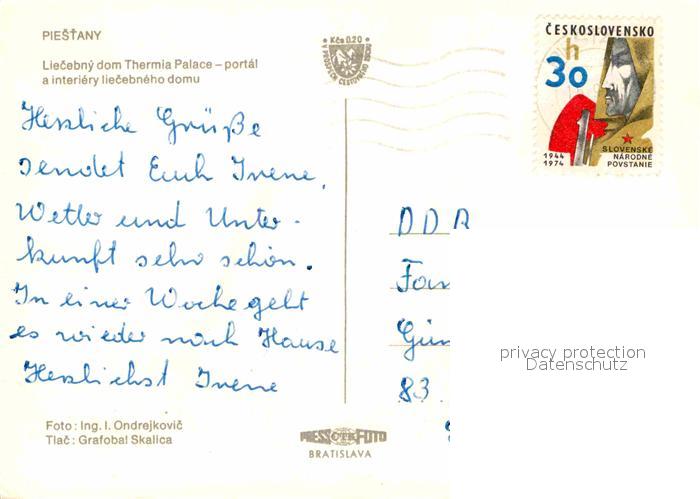 PIEŠŤANY
Liečebný dom Thermia Palace – portál
a interiéry liečebného domu
Kčs 0.20
ČESKOSLOVENSKO
30 h
1944
1974
SLOVENSKÉ
NÁRODNÉ
POVSTANIE
Herzliche Grüße
sendet Euch Irene.
Wetter und Unter-
kunft sehr schön.
In einer Woche geht
es wieder nach Hause
Herzlichst Irene
DDR
Fam
83
privacy protection
Datenschutz
Foto: Ing. I. Ondrejkovič
Tlač: Grafobal Skalica
PRESSFOTO
BRATISLAVA